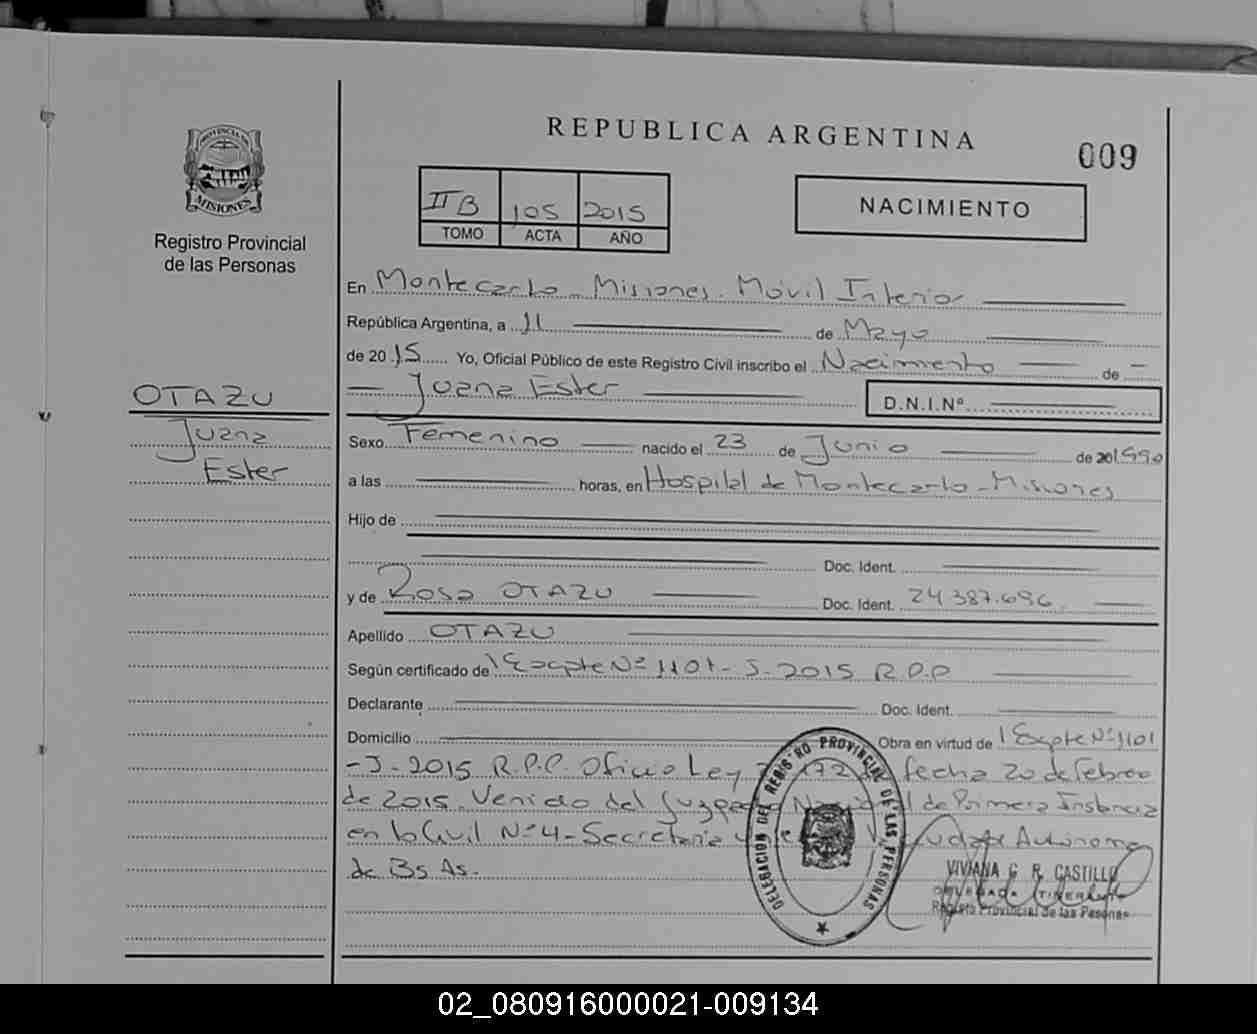 REPUBLICA ARGENTINA
009
PROVINCIA DE
MISIONES
Registro Provincial
de las Personas
II B 105 2015
TOMO ACTA AÑO
NACIMIENTO
En Montecarlo - Misiones. Móvil Interior
República Argentina, a 11 de Mayo
de 2015 Yo, Oficial Público de este Registro Civil inscribo el Nacimiento de
Juana Ester D.N.I.Nº
OTAZU
Juana
Ester
Sexo Femenino nacido el 23 de Junio de 201990
a las horas, en Hospital de Montecarlo - Misiones
Hijo de
Doc. Ident.
y de Rosa OTAZU Doc. Ident. 24.387.696
Apellido OTAZU
Según certificado de Expte Nº 1101 - J - 2015 R.P.P
Declarante Doc. Ident.
Domicilio Obra en virtud de Expte Nº 1101
- J - 2015 R.P.P. Oficio Ley 172 fecha 20 de Febrero
de 2015. Venido del Juzgado Nacional de Primera Instancia
en lo Civil Nº 4 - Secretaria Ciudad Autónoma
de Bs As.
DELEGACION DEL REGISTRO PROVINCIAL DE LAS PERSONAS
VIVIANA G. R. CASTILLO
DELEGADA ITINERANTE
Registro Provincial de las Personas
02_080916000021-009134